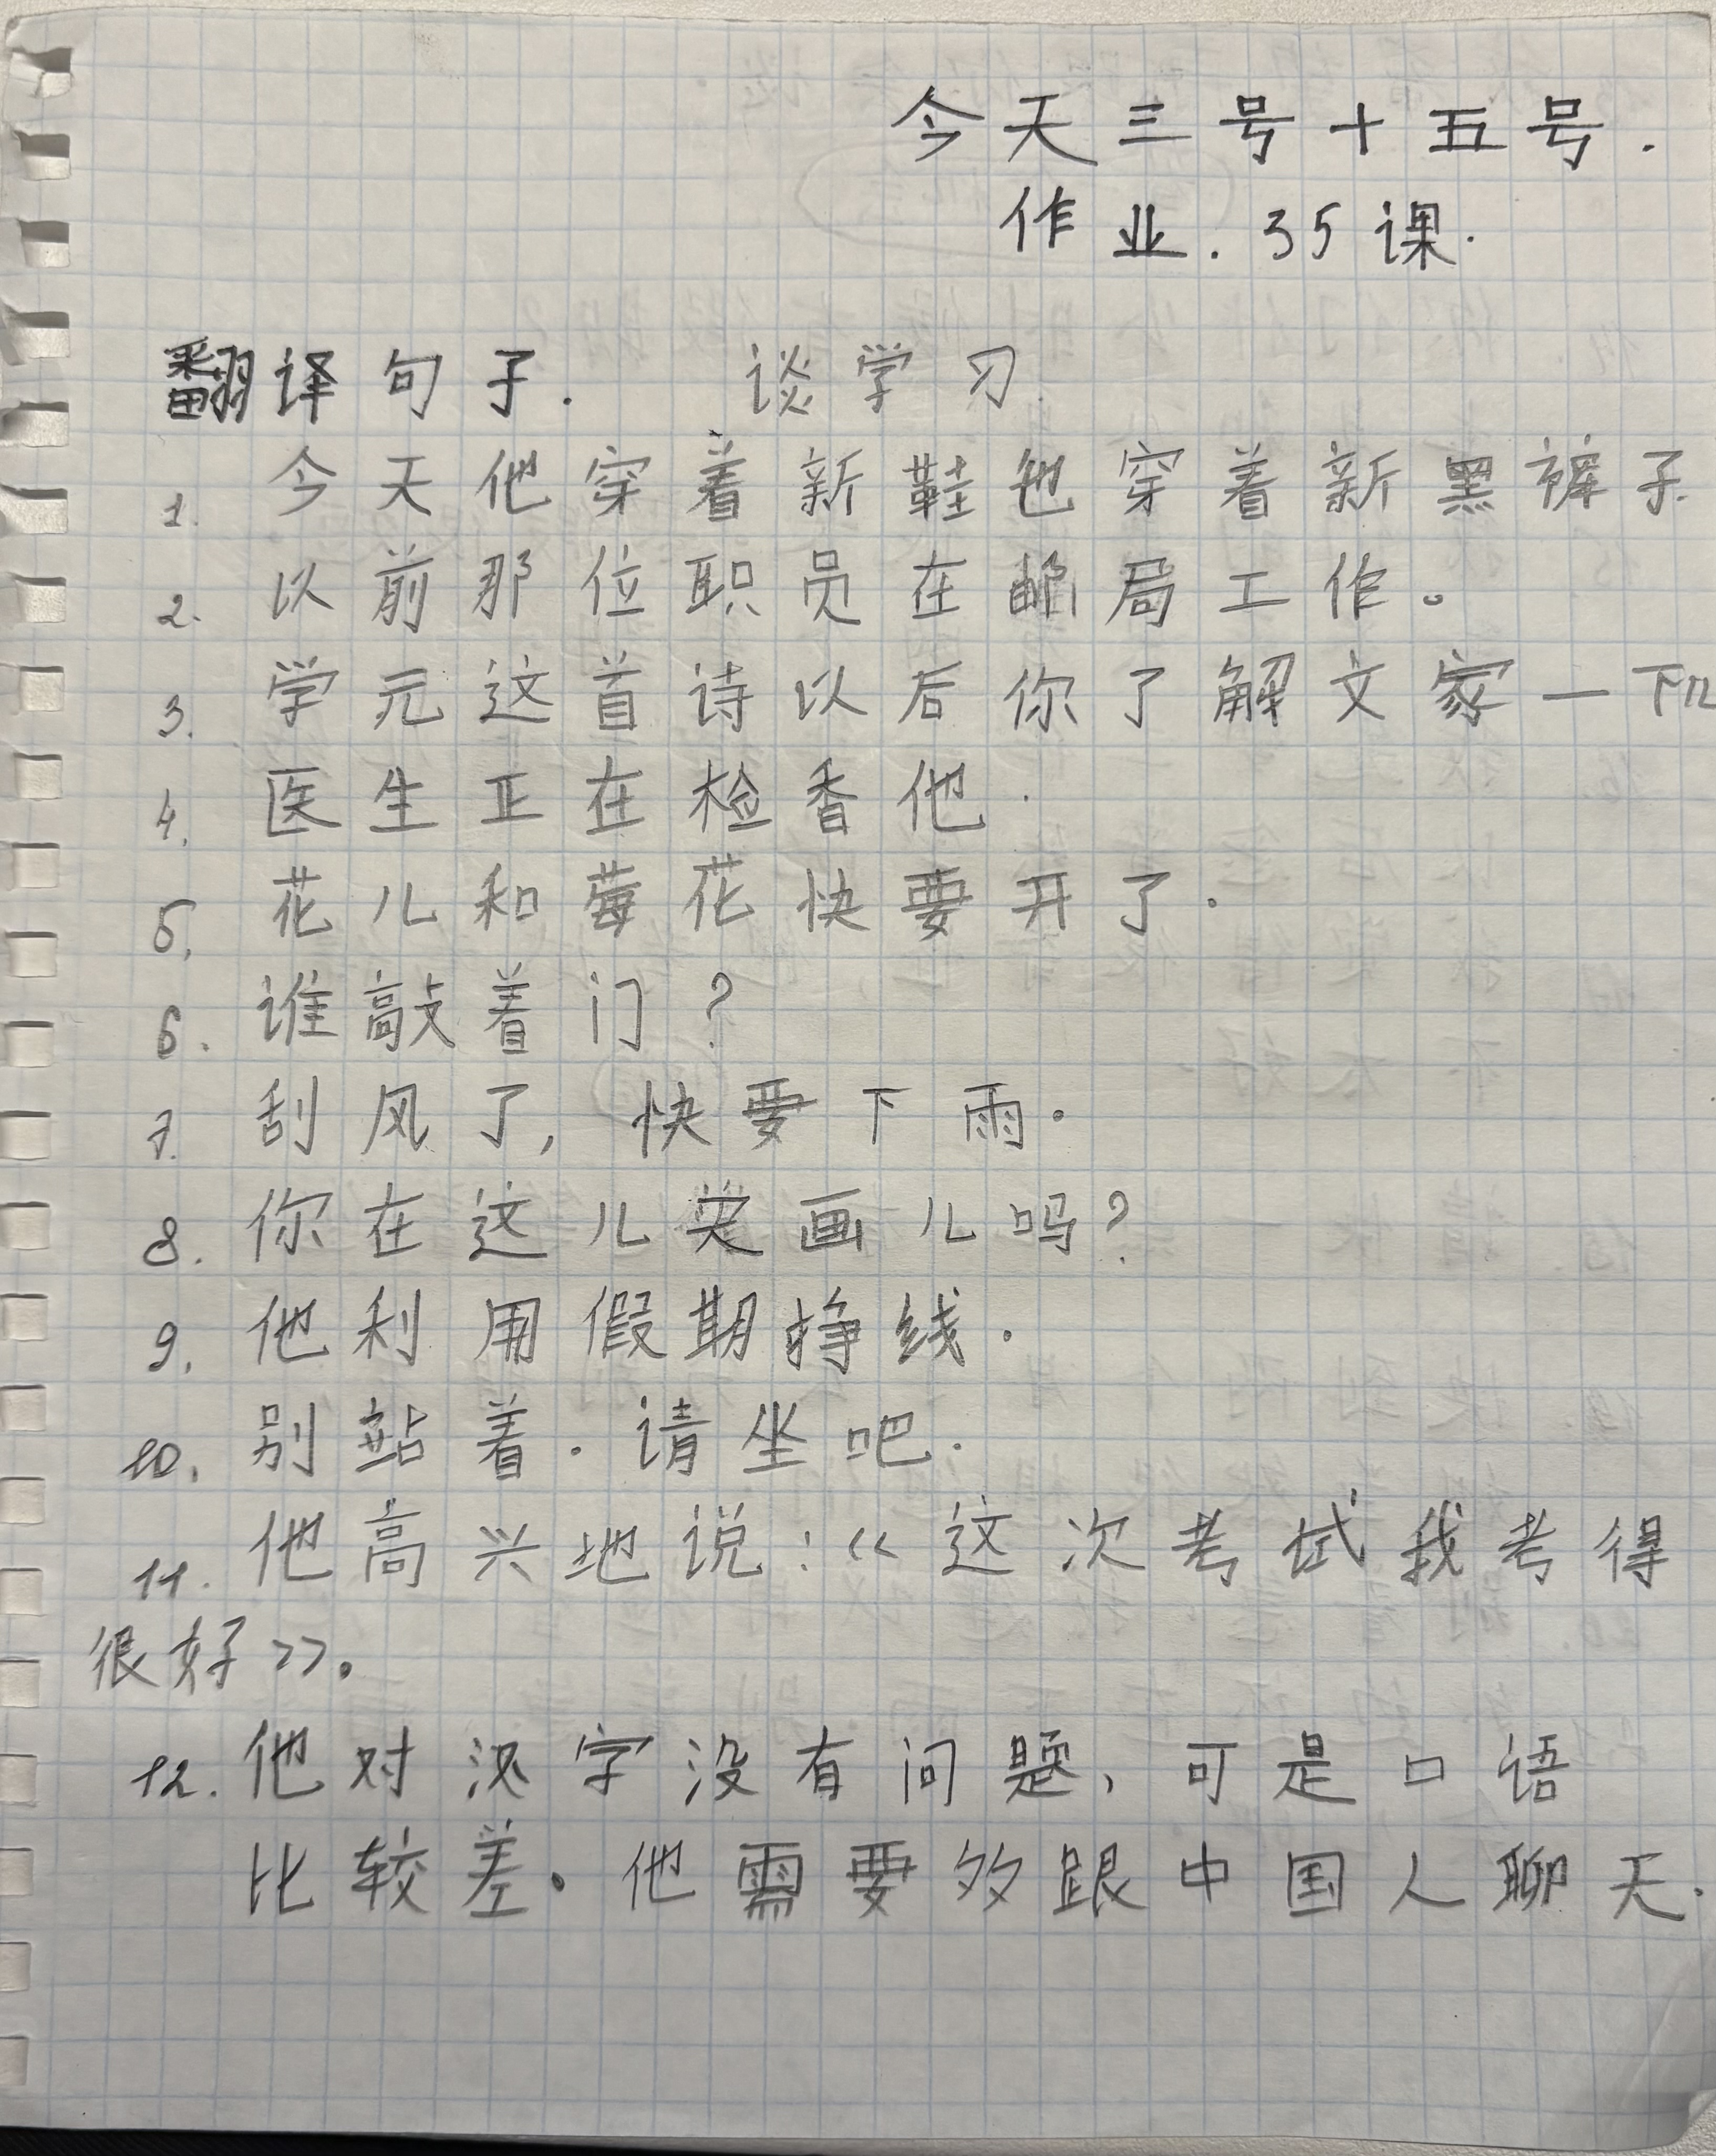 今天三号十五号.
作业. 35课.
翻译句子. 谈学习.
1. 今天他穿着新鞋他穿着新黑裤子.
2. 以前那位职员在邮局工作。
3. 学元这首诗以后你了解文家一下儿
4. 医生正在检香他.
5. 花儿和莓花快要开了.
6. 谁敲着门?
7. 刮风了, 快要下雨.
8. 你在这儿买画儿吗?
9. 他利用假期挣线.
10. 别站着. 请坐吧.
11. 他高兴地说:《这次考试我考得
很好》。
12. 他对汉字没有问题, 可是口语
比较差. 他需要多跟中国人聊天.